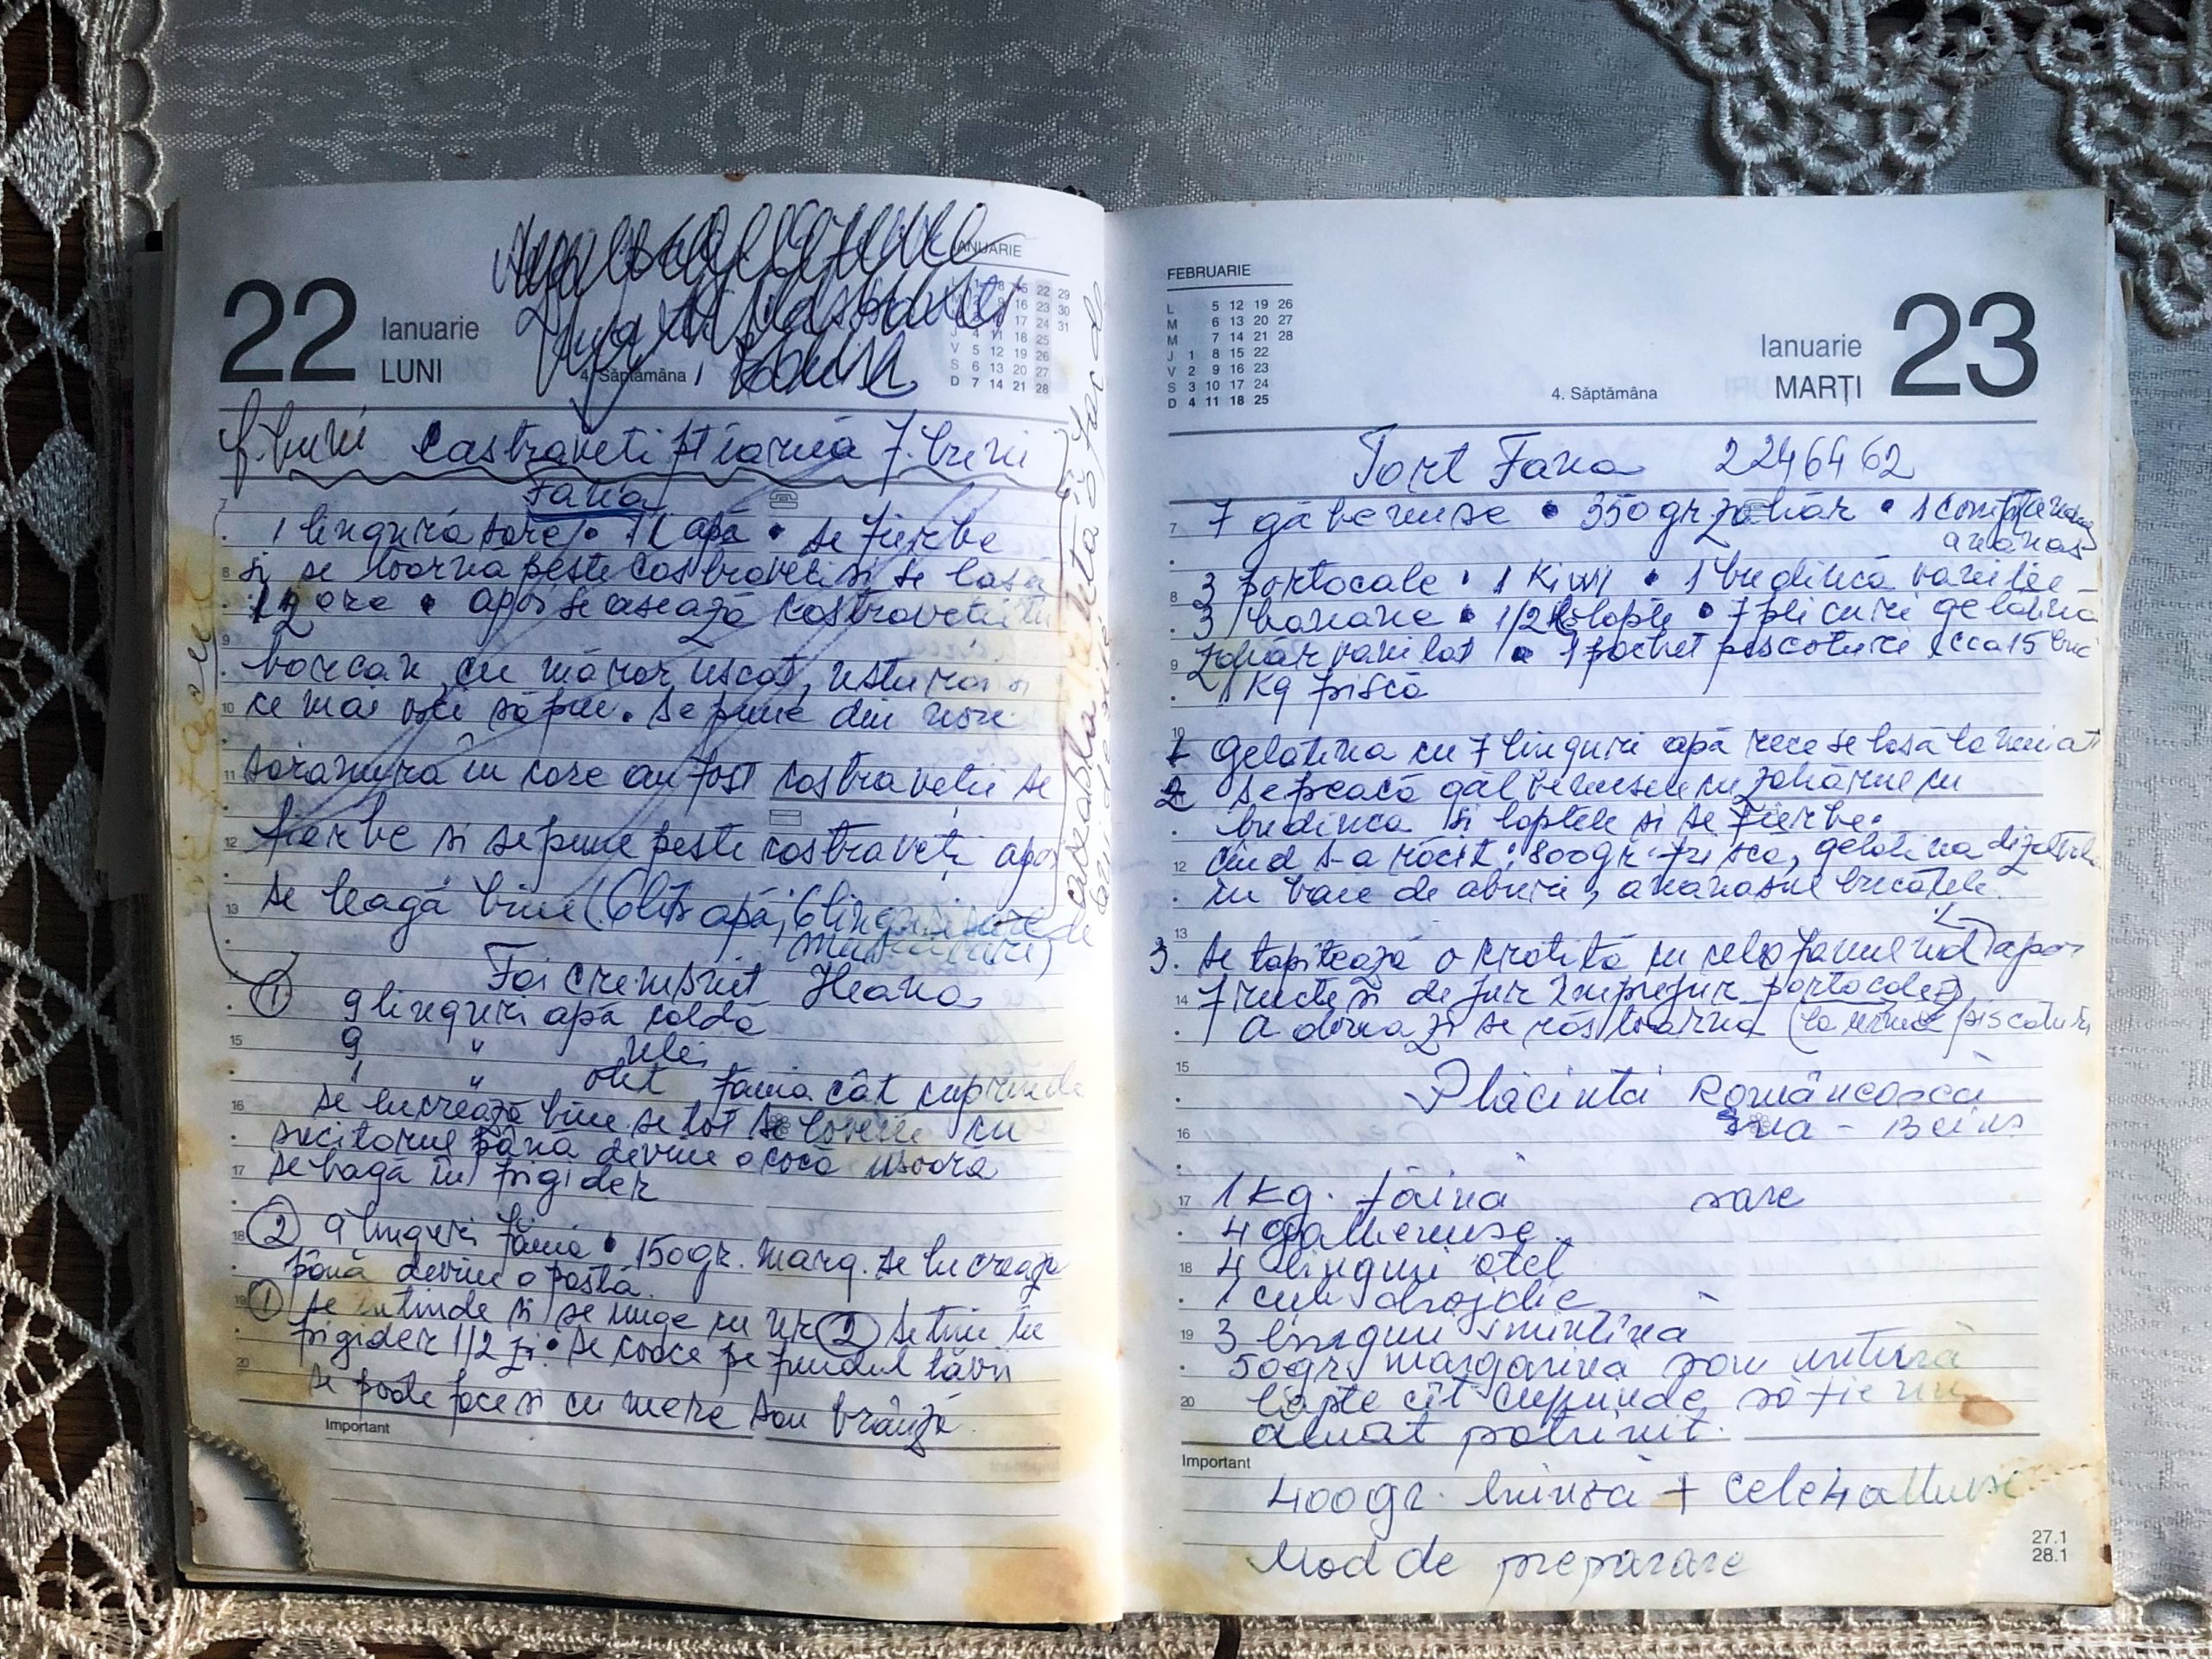 22
Ianuarie
LUNI
IANUARIE
4. Săptămâna
f. buni Castraveti pt iarnă f. buni
Fana
1 lingură sare • 1l apă • se fierbe
si se toarnă peste castraveti si se lasă
12 ore • apoi se asează castravetii în
borcan cu mărar uscat, usturoi si
ce mai vrei să pui. Se pune din nou
saramura în care au fost castravetii se
fierbe si se pune peste castraveți apoi
se leagă bine (6 lit apă; 6 linguri sare de
murături)
Foi cremsnit Ileana
① 9 linguri apă caldă
9 " ulei
1 " otet faina cât cuprinde
se lucrează bine se tot loveste cu
sucitorul până devine o cocă usoară
se bagă în frigider
② 9 linguri făină • 150gr. marg. se lucreaza
până devine o pastă.
① se intinde si se unge cu nr ② se tine în
frigider 1/2 zi • se coace pe fundul tăvii
se poate face si cu mere sau brânză
Important
FEBRUARIE
L 5 12 19 26
M 6 13 20 27
M 7 14 21 28
J 1 8 15 22
V 2 9 16 23
S 3 10 17 24
D 4 11 18 25
4. Săptămâna
Ianuarie
MARȚI
23
Tort Fana 2246462
7 găbenuse • 350gr zahăr • 1 compot
ananas
3 portocale • 1 Kiwi • 1 budincă vanilie
3 banane • 1/2 lapte • 7 plicuri gelatină
zahăr vanilat • 1 pachet piscoturi cca 15 buc
1 Kg friscă
1 Gelatina cu 7 linguri apă rece se lasă la muiat
2 se freacă gălbenusele cu zahărul cu
budinca si laptele si se fierbe.
când s-a răcit: 800gr frisca, gelatina dizolvată
în baie de aburi, ananasul bucătele
3. se tapitează o cratită cu celofanul ud apoi
fructe si de jur împrejur portocale
A doua zi se răstoarnă (la urmă piscoturi
Plăcintă Românească
Ina - Beius
1 Kg. făină sare
4 galbenuse
4 linguri otet
1 cub drojdie
3 linguri smîntîna
50gr margarina sau untură
lapte cît cuprinde să fie un
aluat potrivit.
Important
400gr. brînză + cele 4 albusi
Mod de preparare
27.1
28.1